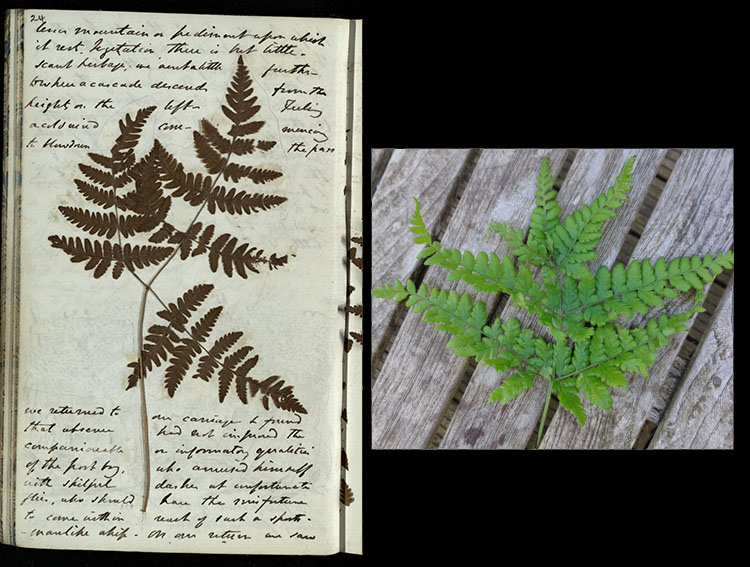 24
lesser mountain or pediment upon which
it rest. Vegetation there is but little -
scant herbage, we went a little further
to where a cascade descends from the
height on the left - Feeling
a cold wind com- mencing
to blow down the pass
we returned to our carriage & found
that absence had not improved the
companionable or informatory qualities
of the post boy, who amused himself
with skilful dashes at unfortunate
flies, who should have the misfortune
to come within reach of such a sports-
-manlike whip - On our return we saw